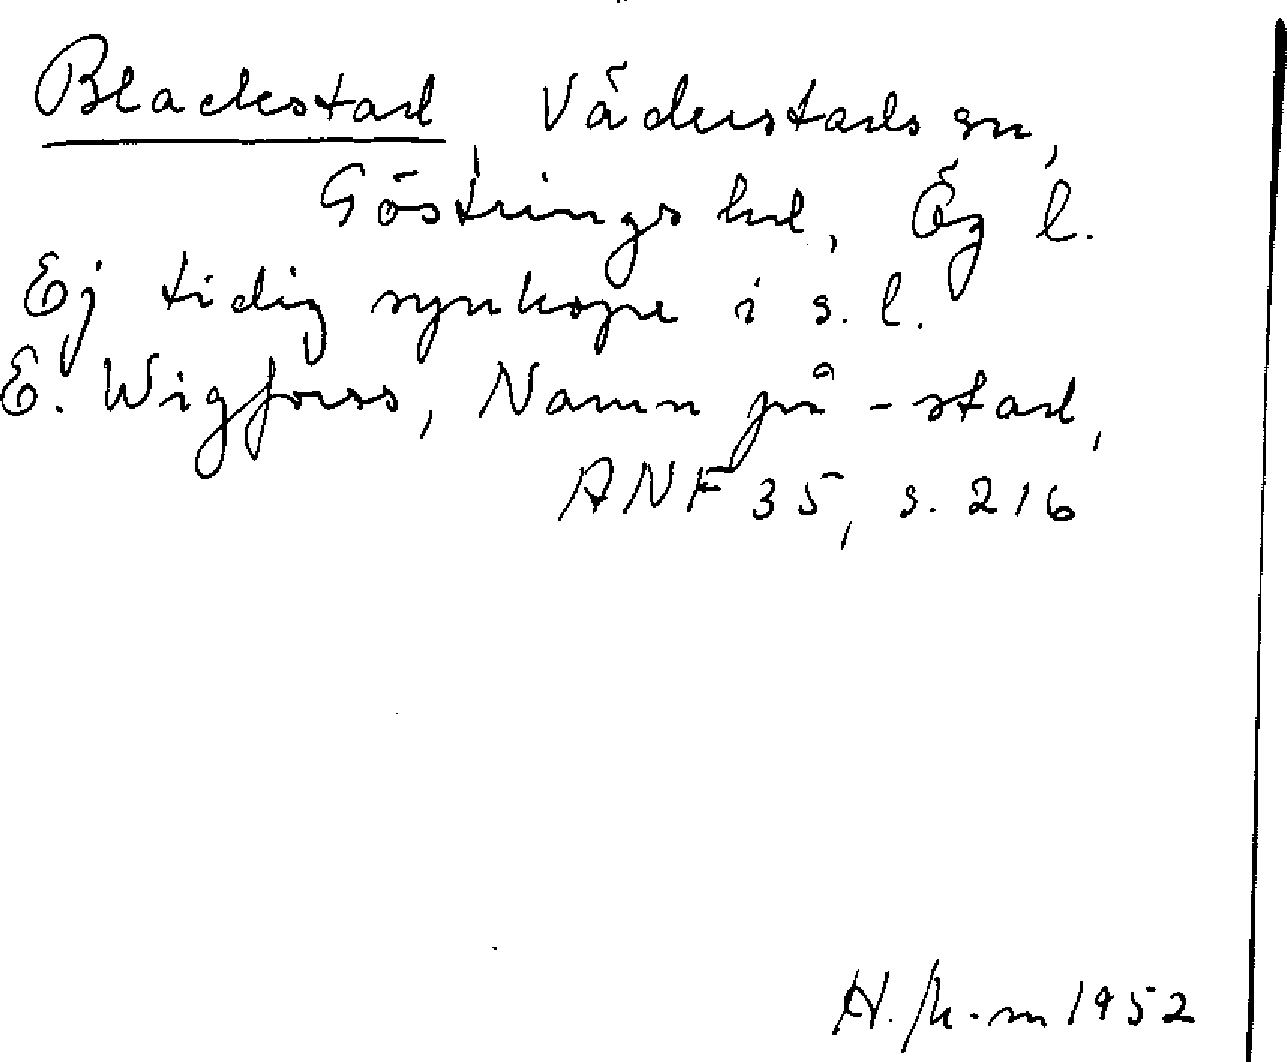 Blackstad, Väderstads sn,
Göstrings hd, Ög l.
Ej tidig synkope i s. l.
E. Wigforss, Namn på -stad,
ANF 35, s. 216
1952